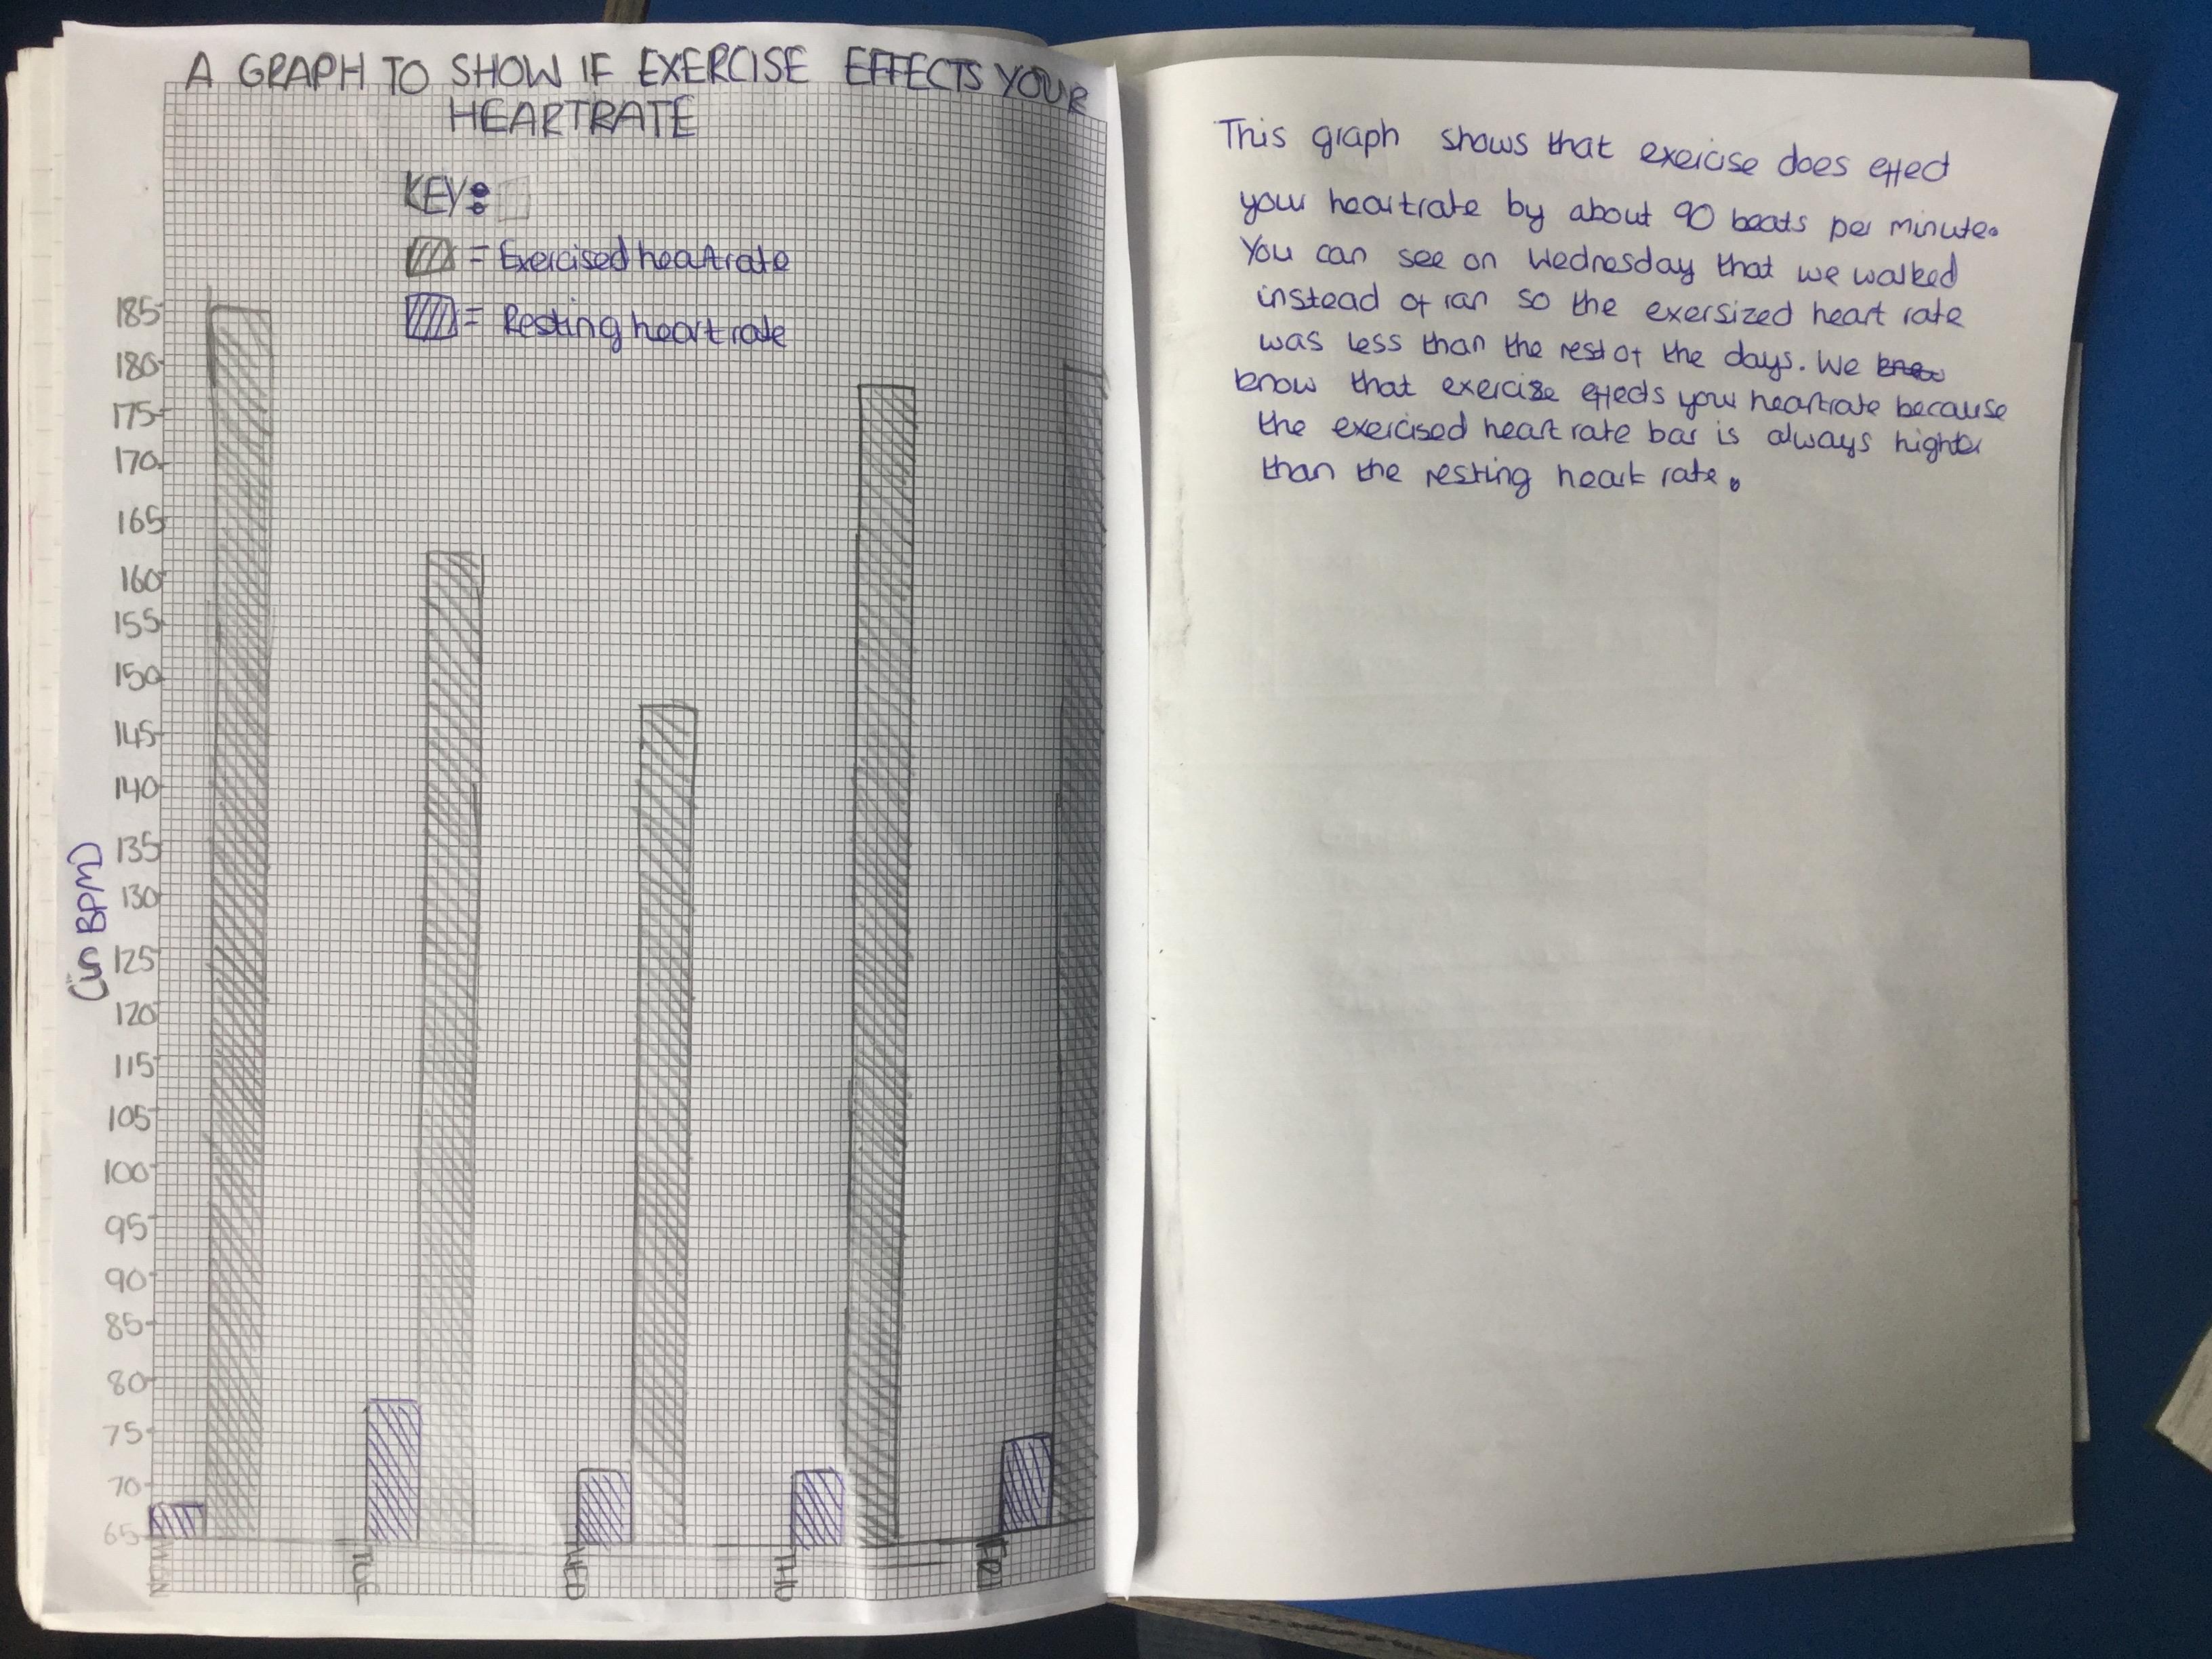 A GRAPH TO SHOW IF EXERCISE EFFECTS YOUR
HEARTRATE
KEY:
= Exercised heartrate
= Resting heart rate
185
180
175
170
165
160
155
150
145
140
135
130
125
120
115
105
100
95
90
85
80
75
70
65
(in BPM)
MON
TUE
WED
THU
FRI
This graph shows that exercise does effect
your heartrate by about 90 beats per minute.
You can see on Wednesday that we walked
instead of ran so the exersized heart rate
was less than the rest of the days. We knew
know that exercise effects your heartrate because
the exercised heart rate bar is always higher
than the resting heart rate.